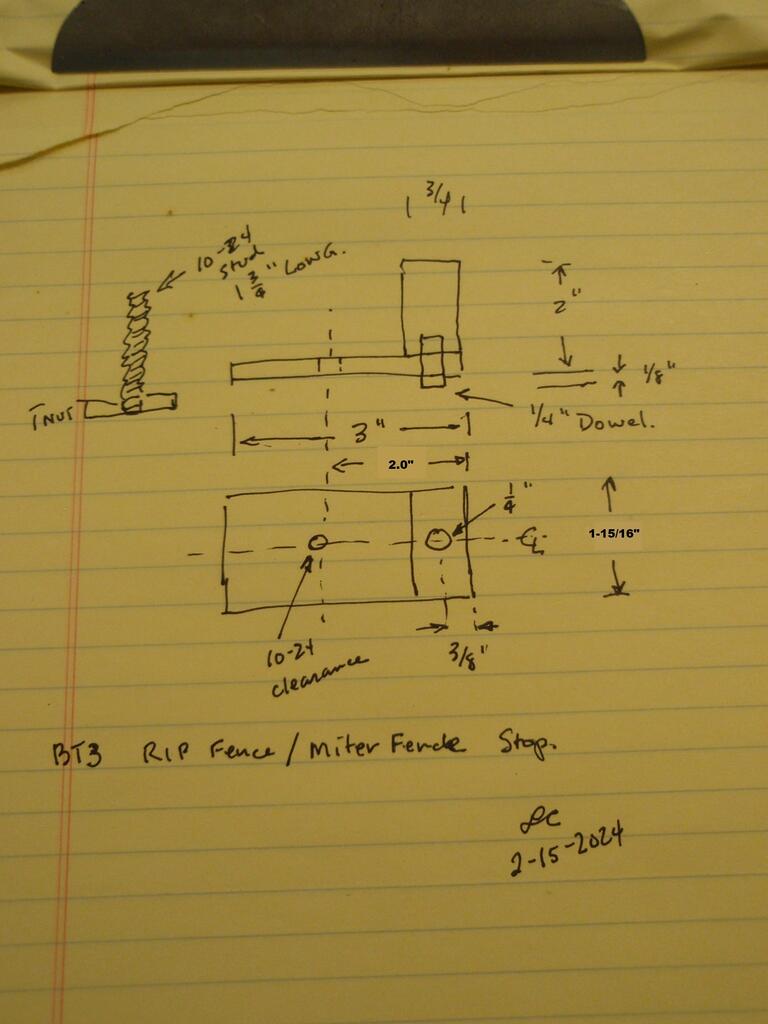 3/4
10-24
Stud
1 3/4" LONG.
2"
1/8"
TNUT
1/4" Dowel.
3"
2.0"
1/4"
1-15/16"
℄
10-24
clearance
3/8"
BT3 RIP Fence / Miter Fence Stop.
2-15-2024